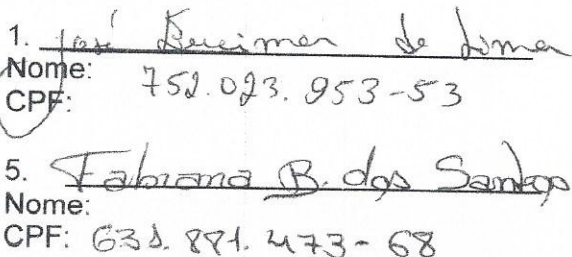 1. José Lucimar de Lima
Nome:
CPF: 752.023.953-53
5. Fabiana B. dos Santos
Nome:
CPF: 631.881.473-68